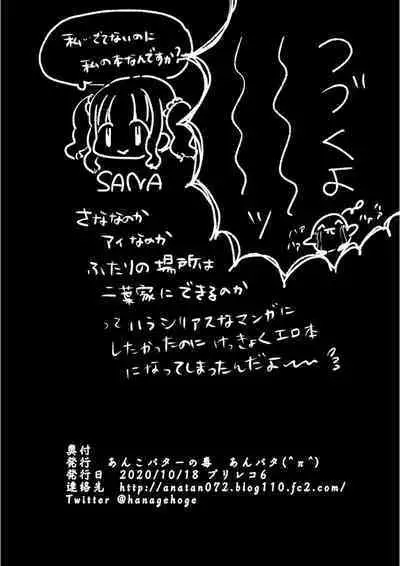 私…でてないのに
私の本なんですか?
SANA
つづくよ
ッ
ハァハァ
さななのか
アイなのか
ふたりの場所は
二葉家にできるのか
っていうシリアスなマンガに
したかったのにけっきょくエロ本
になってしまったんだよ〜〜
奥付
発行 あんこバターの毒 あんバタ(^π^)
発行日 2020/10/18 プリレコ6
連絡先 http://anatan072.blog110.fc2.com/
Twitter @hanagehoge